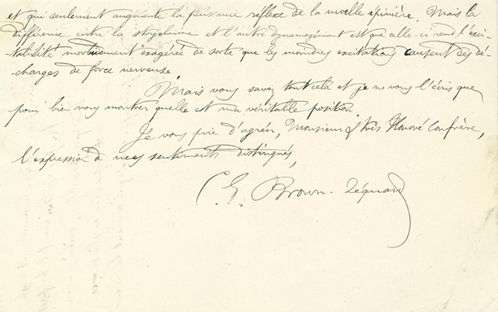 et qui seulement augmente la puissance réflexe de la moelle épinière. Mais la
différence entre la strychnine et l'autre est que elle
exagérée de sorte que les moindres excitations causent des dé-
charges de force nerveuse.
Mais vous savez tout cela et je ne vous l'écris que
pour bien vous montrer quelle est ma véritable position.
Je vous prie d'agréer, Monsieur et très Honoré Confrère,
l'expression de mes sentiments distingués,
C. E. Brown-Séquard